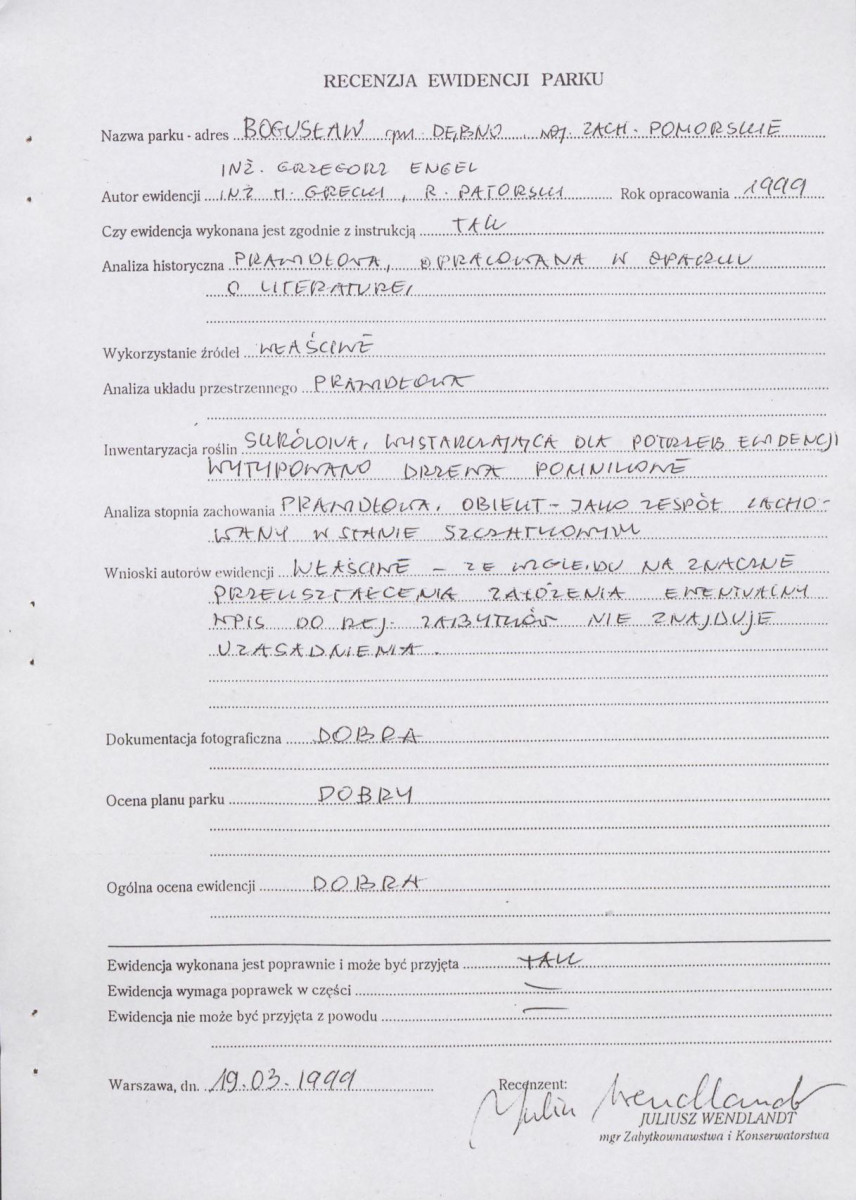 RECENZJA EWIDENCJI PARKU
Nazwa parku - adres BOGUSŁAW gm. DĘBNO woj. ZACH. POMORSKIE
INŻ. GRZEGORZ ENGEL
Autor ewidencji INŻ M. GRECKI, R. PATORSKI Rok opracowania 1999
Czy ewidencja wykonana jest zgodnie z instrukcją TAK
Analiza historyczna PRAWIDŁOWA, OPRACOWANA W OPARCIU
O LITERATURĘ,
Wykorzystanie źródeł WŁAŚCIWE
Analiza układu przestrzennego PRAWIDŁOWA
Inwentaryzacja roślin SKRÓTOWA, WYSTARCZAJĄCA DLA POTRZEB EWIDENCJI
WYTYPOWANO DRZEWA POMNIKOWE
Analiza stopnia zachowania PRAWIDŁOWA, OBIEKT - JAKO ZESPÓŁ ZACHO-
WANY W STANIE SZCZĄTKOWYM
Wnioski autorów ewidencji WŁAŚCIWE - ZE WZGLĘDU NA ZNACZNE
PRZEKSZTAŁCENIA ZAŁOŻENIA EWENTUALNY
WPIS DO REJ. ZABYTKÓW NIE ZNAJDUJE
UZASADNIENIA.
Dokumentacja fotograficzna DOBRA
Ocena planu parku DOBRY
Ogólna ocena ewidencji DOBRA
Ewidencja wykonana jest poprawnie i może być przyjęta TAK
Ewidencja wymaga poprawek w części —
Ewidencja nie może być przyjęta z powodu —
Warszawa, dn. 19.03.1999 Recenzent:
Juliu Wendlandt
JULIUSZ WENDLANDT
mgr Zabytkownawstwa i Konserwatorstwa